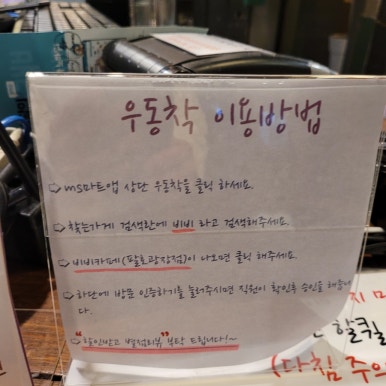 우동착 이용방법
➪ ms마트앱 상단 우동착을 클릭 하세요.
➪ 찾는가게 검색란에 비비 라고 검색해주세요.
➪ 비비카페(팔로광장점)이 나오면 클릭 해주세요.
➪ 하단에 방문 인증하기를 눌러주시면 직원이 확인후 승인을 해줍니
다.
➪ "할인받고 별점리뷰" 부탁 드립니다!~
지 마
할퀼
(다침 주의